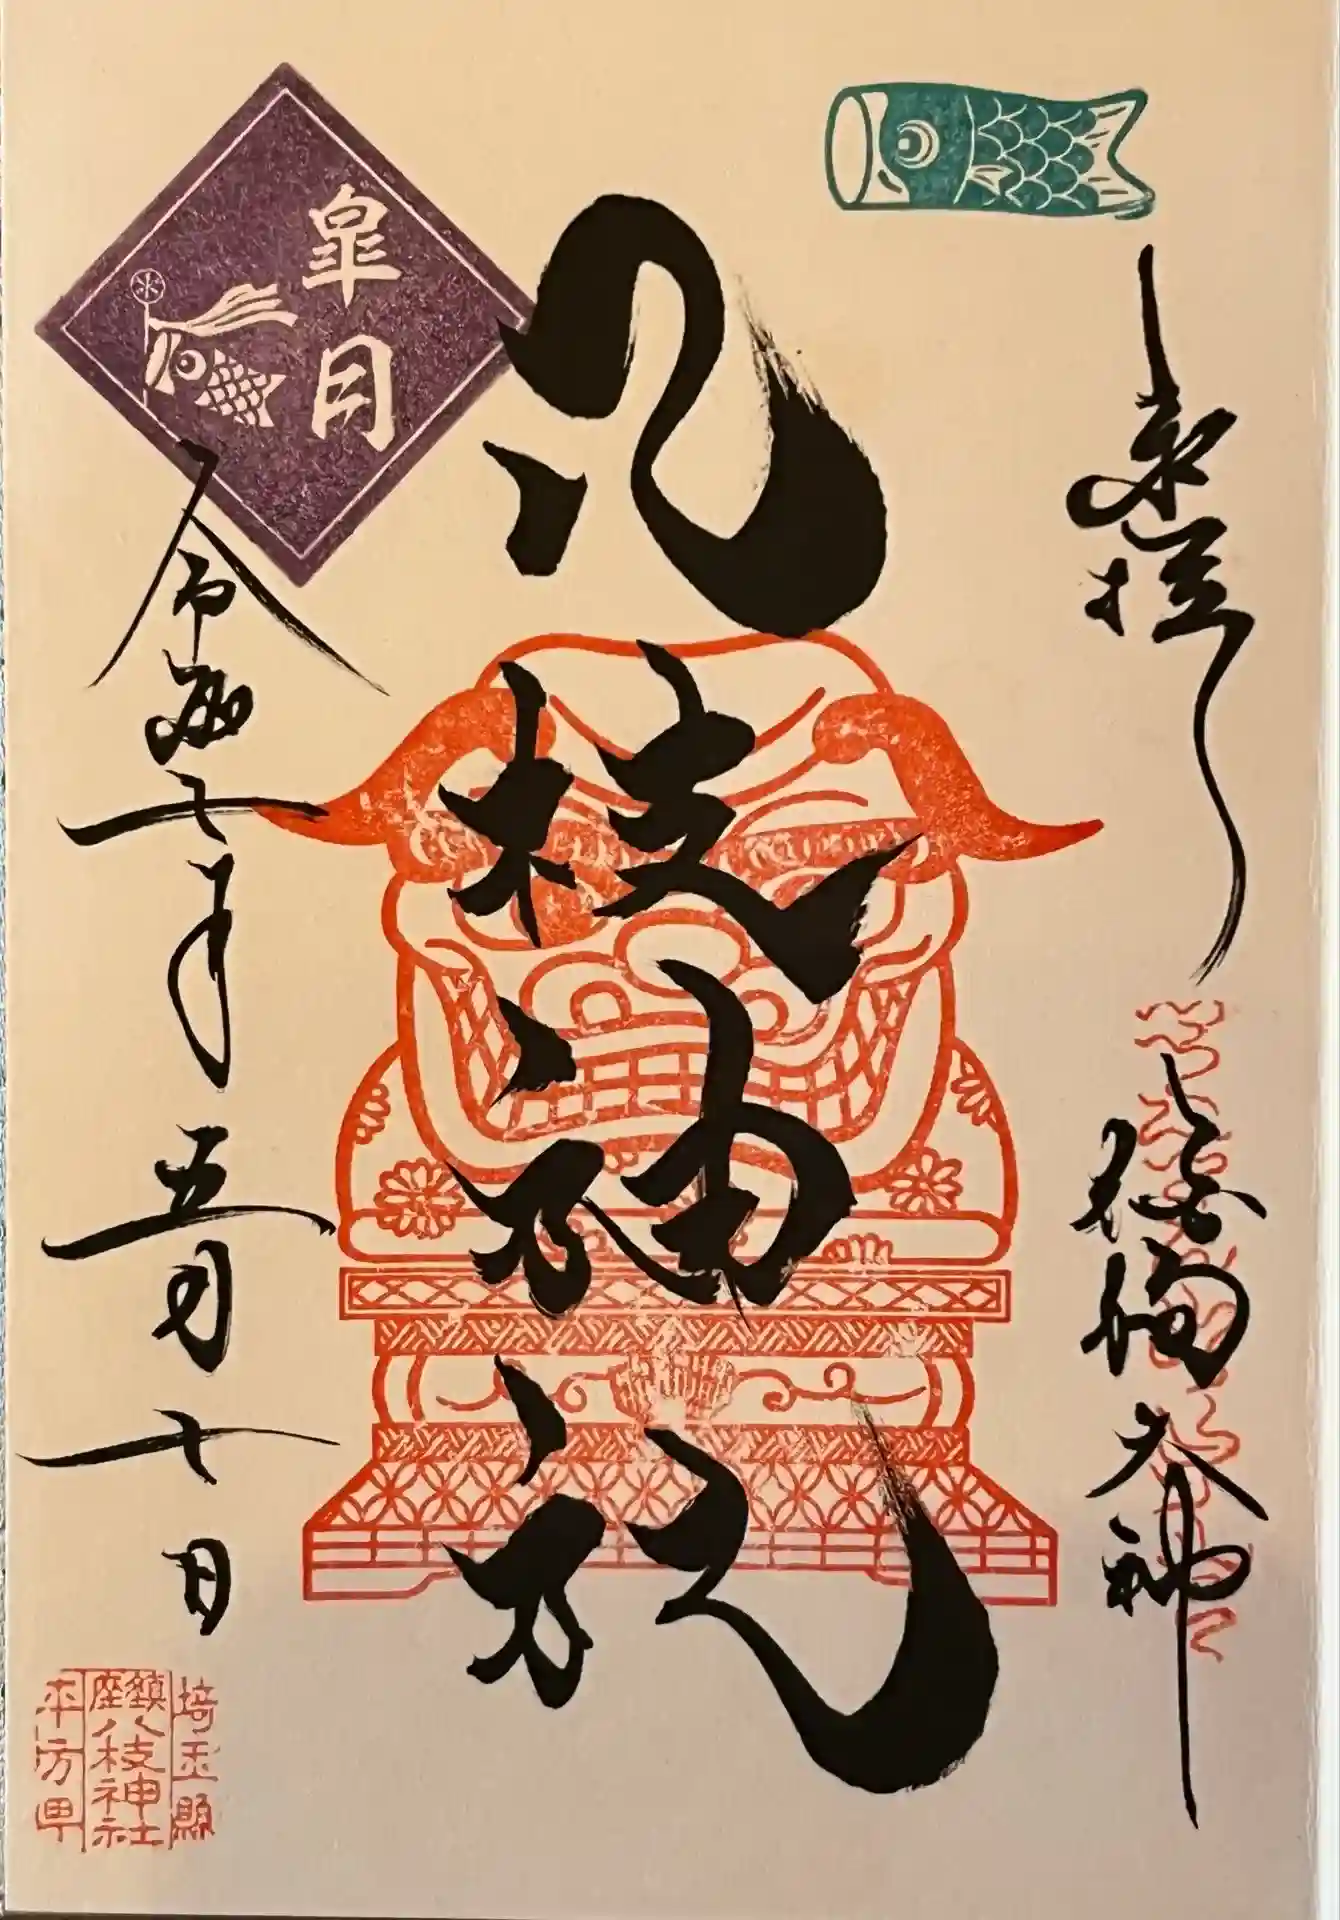 奉拝
狛狗大神
八枝神社
皐月
令和七年
五月七日
埼玉縣
鎮座八枝神社
平方甼